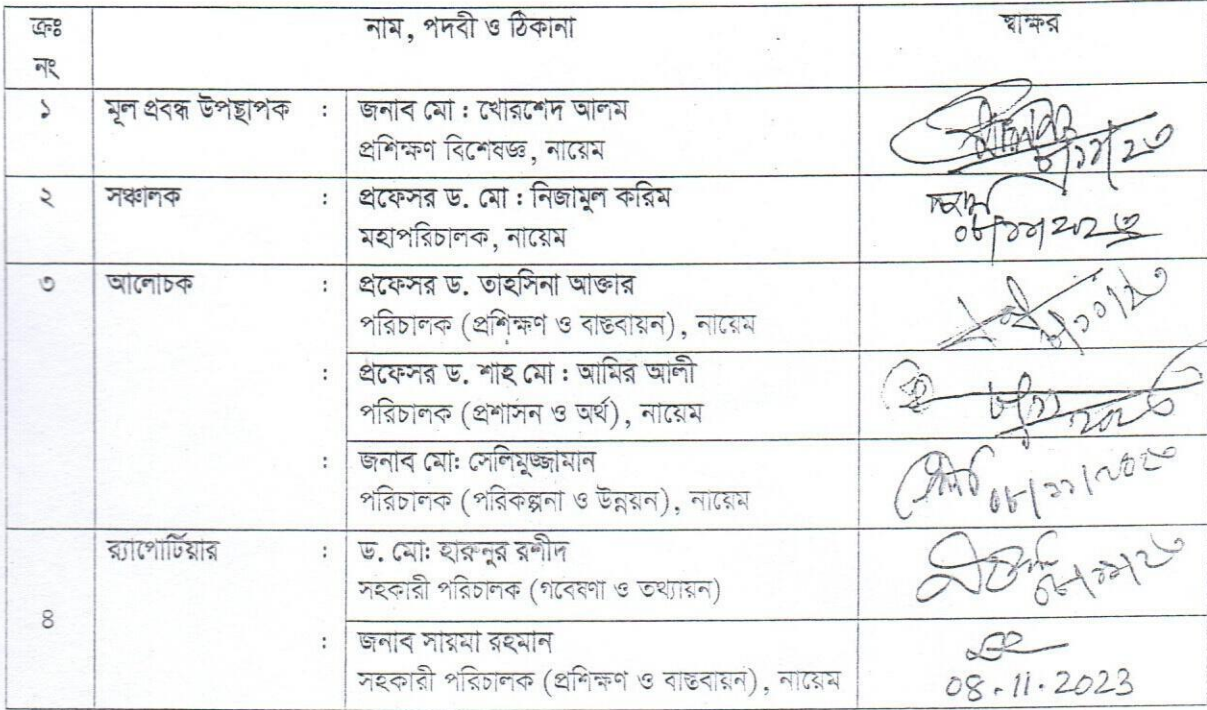 ক্রঃ নং নাম, পদবী ও ঠিকানা স্বাক্ষর
১ মূল প্রবন্ধ উপস্থাপক : জনাব মো : খোরশেদ আলম
প্রশিক্ষণ বিশেষজ্ঞ, নায়েম
৮/১১/২৩
২ সঞ্চালক : প্রফেসর ড. মো : নিজামুল করিম
মহাপরিচালক, নায়েম
০৮/১১/২০২৩
৩ আলোচক : প্রফেসর ড. তাহসিনা আক্তার
পরিচালক (প্রশিক্ষণ ও বাস্তবায়ন), নায়েম
: প্রফেসর ড. শাহ মো : আমির আলী
পরিচালক (প্রশাসন ও অর্থ), নায়েম
৮/১১/২০২৩
: জনাব মো: সেলিমুজ্জামান
পরিচালক (পরিকল্পনা ও উন্নয়ন), নায়েম
০৮/১১/২০২৩
৪ র‍্যাপোর্টিয়ার : ড. মো: হারুনুর রশীদ
সহকারী পরিচালক (গবেষণা ও তথ্যায়ন)
০৮/১১/২৩
: জনাব সায়মা রহমান
সহকারী পরিচালক (প্রশিক্ষণ ও বাস্তবায়ন), নায়েম
08.11.2023